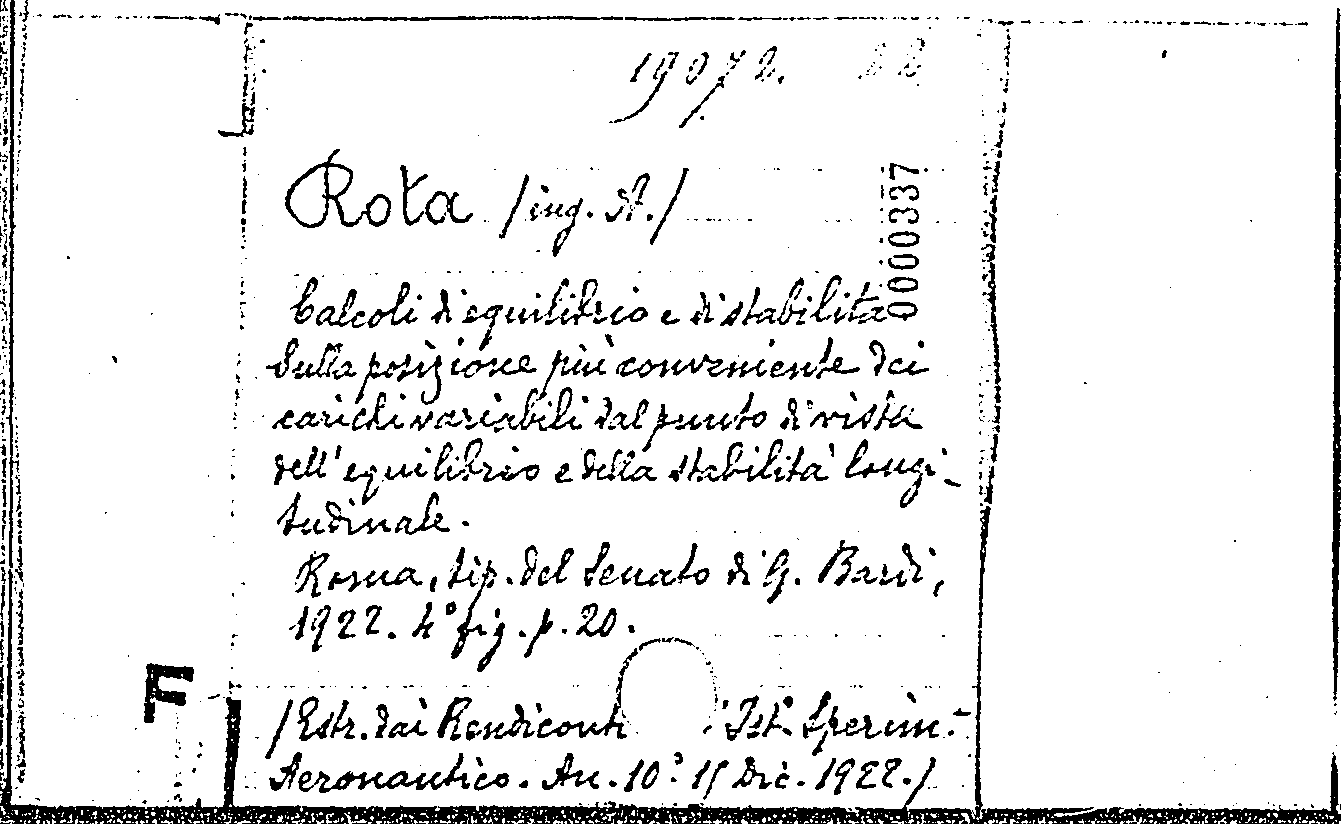 19072. 22
Rota /ing. A./
0000337
Calcoli di equilibrio e di stabilità
Sulla posizione più conveniente dei
carichi variabili dal punto di vista
dell'equilibrio e della stabilità longi-
tudinale.
Roma, tip. del Senato di G. Bardi,
1922. 4° fig. p. 20.
F
/Estr. dai Rendiconti Ist. Sperim.
Aeronautico. An. 10° 15 Dic. 1922./